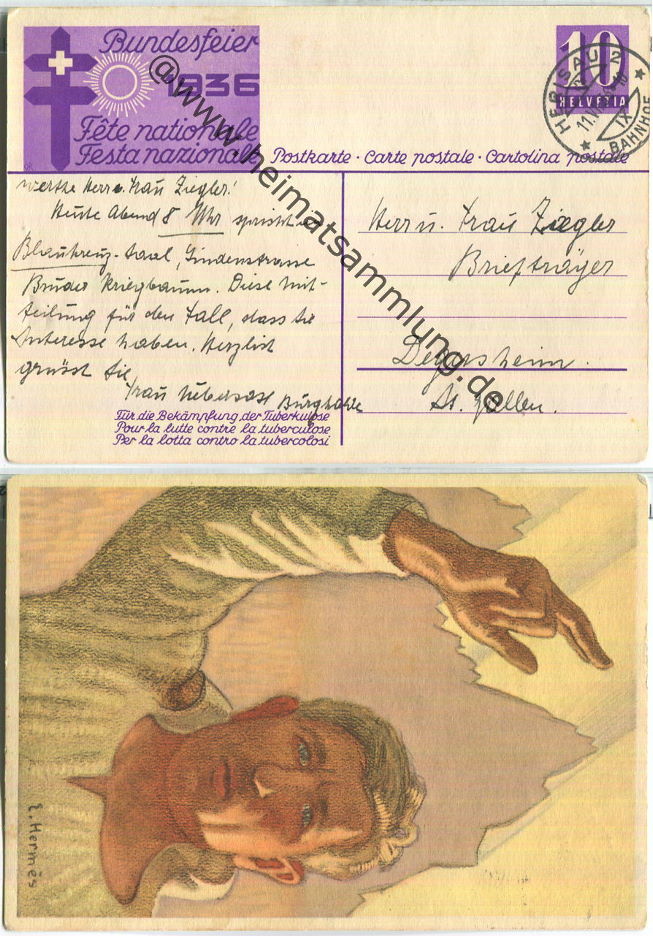 Bundesfeier
1936
Fête nationale
Festa nazionale
10
HELVETIA
HERISAU 2
11.VI
IX
BAHNHOF
Postkarte · Carte postale · Cartolina postale
@www.heimatsammlung.de
Werthe Herr u. Frau Ziegler!
Heute Abend 8 Uhr spricht im
Blaukreuz-saal, Lindenstrasse
Bruder Kriegbaum. Diese Mit-
teilung für den Fall, dass Sie
Interesse haben. Herzlich
grüsst Sie
Frau Uebersax Burghalde
Für die Bekämpfung der Tuberkulose
Pour la lutte contre la tuberculose
Per la lotta contro la tubercolosi
Herr u. Frau Ziegler
Briefträger
Degersheim.
St. Gallen.
E. Hermès